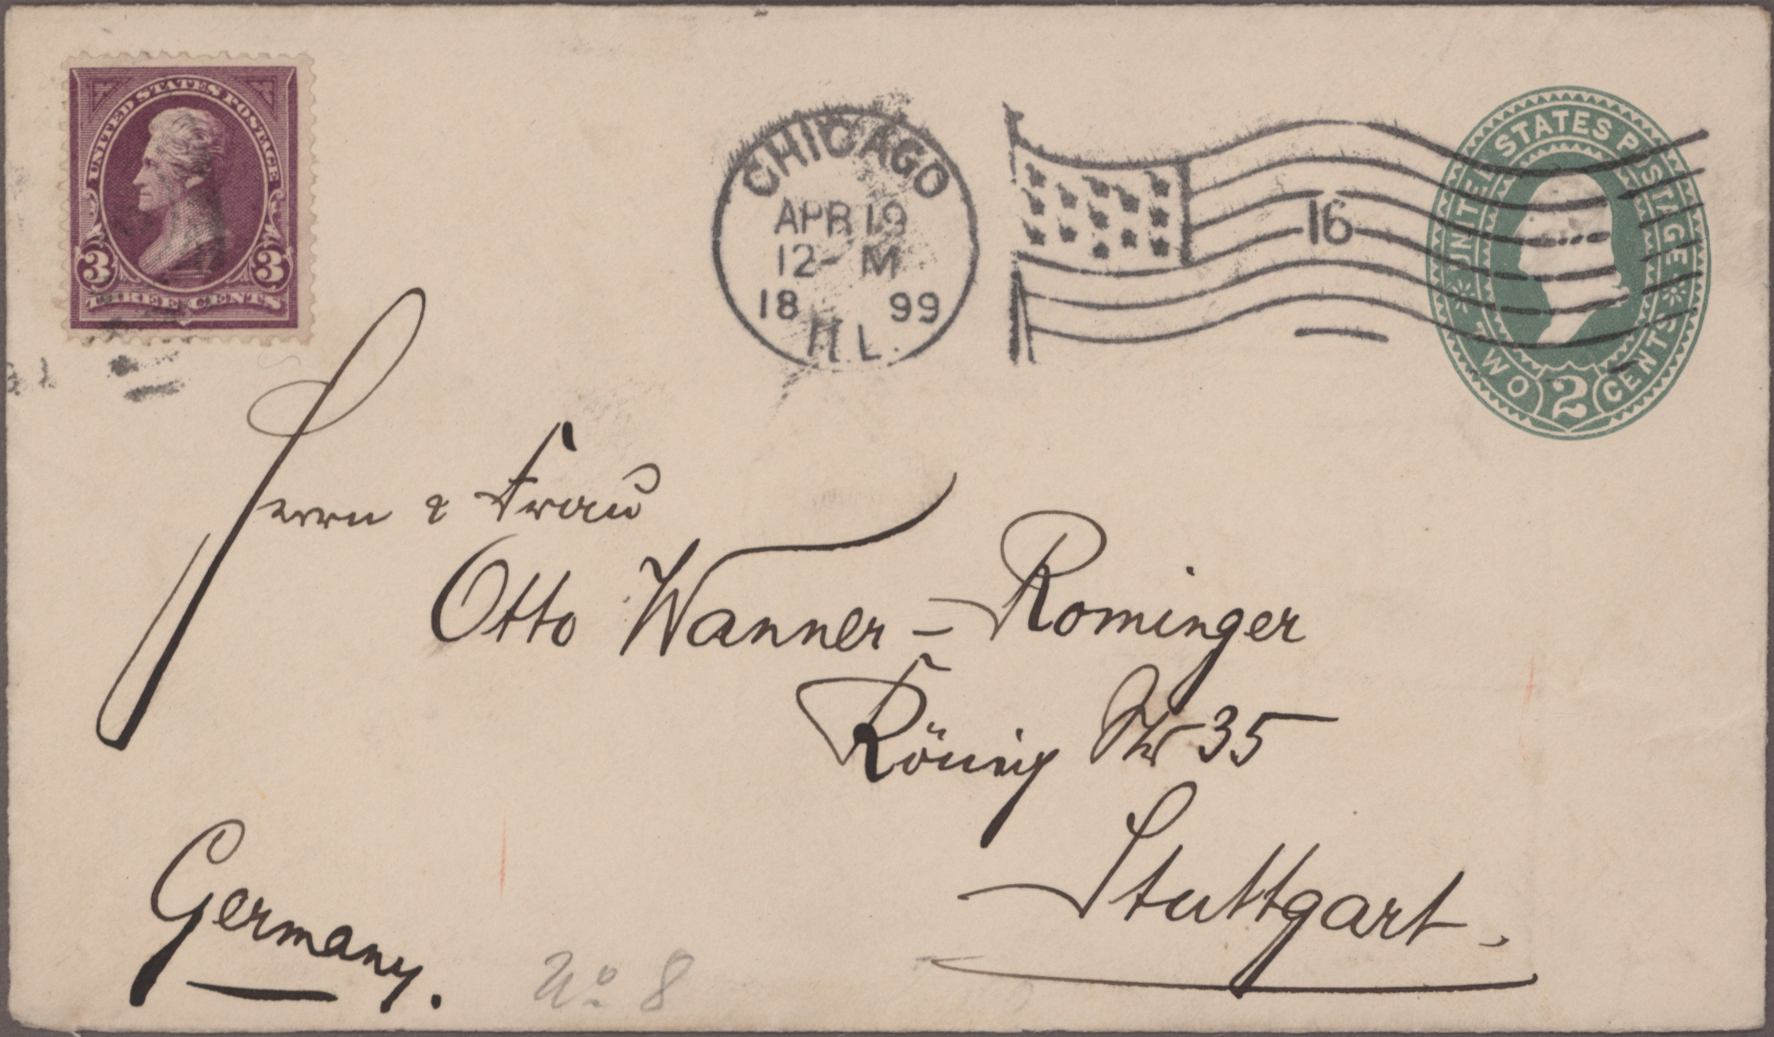 UNITED STATES POSTAGE
3 3
THREE CENTS
CHICAGO
APR 19
12- M
18 99
ILL.
16
UNITED STATES POSTAGE
TWO 2 CENTS
Herrn & Frau
Otto Wanner-Rominger
König Str 35
Stuttgart.
Germany.
No 8